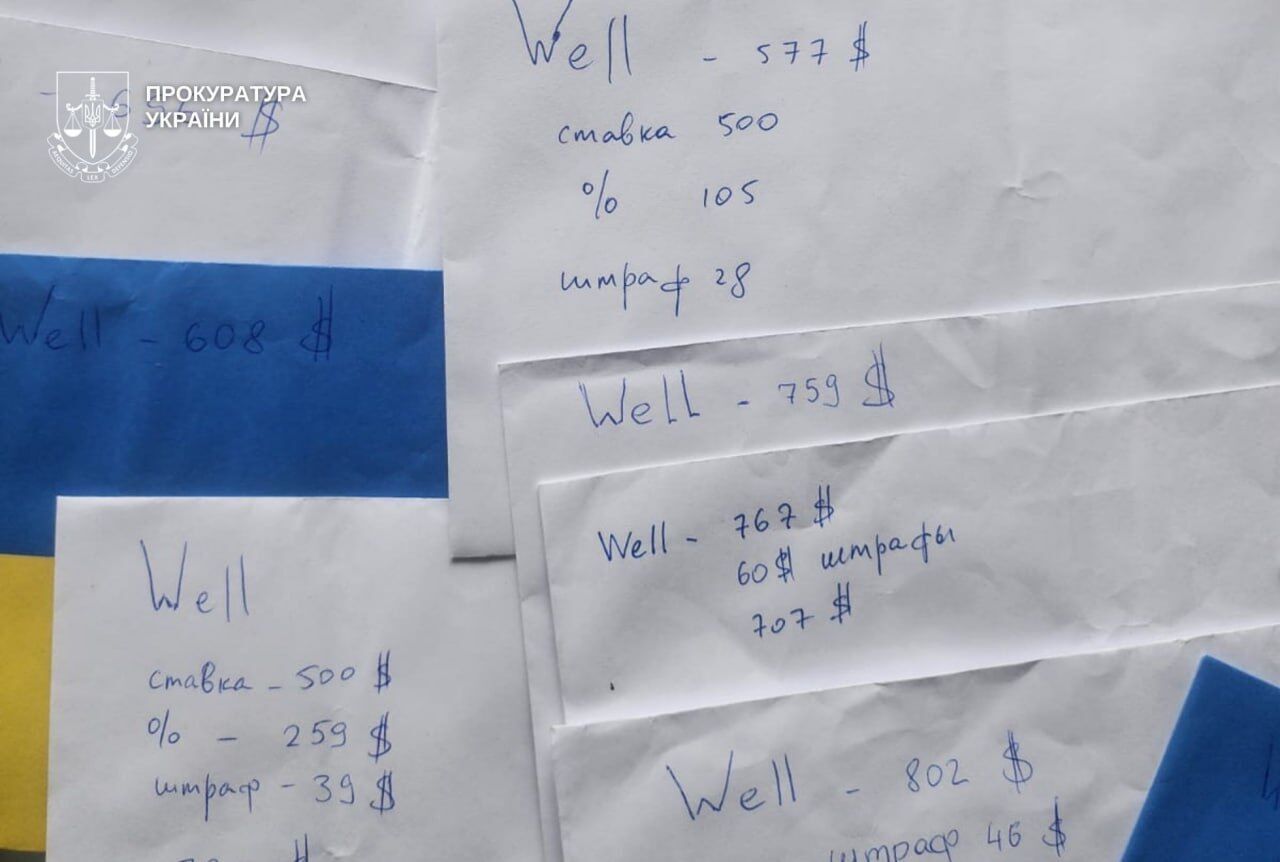 ПРОКУРАТУРА
УКРАЇНИ
AEQUITAS LEX DEFENSIO
$
Well - 608 $
Well - 577 $
ставка 500
% 105
штраф 28
Well - 759 $
Well - 767 $
60$ штрафы
707 $
Well
ставка - 500 $
% - 259 $
штраф - 39 $
$
Well - 802 $
штраф 46 $